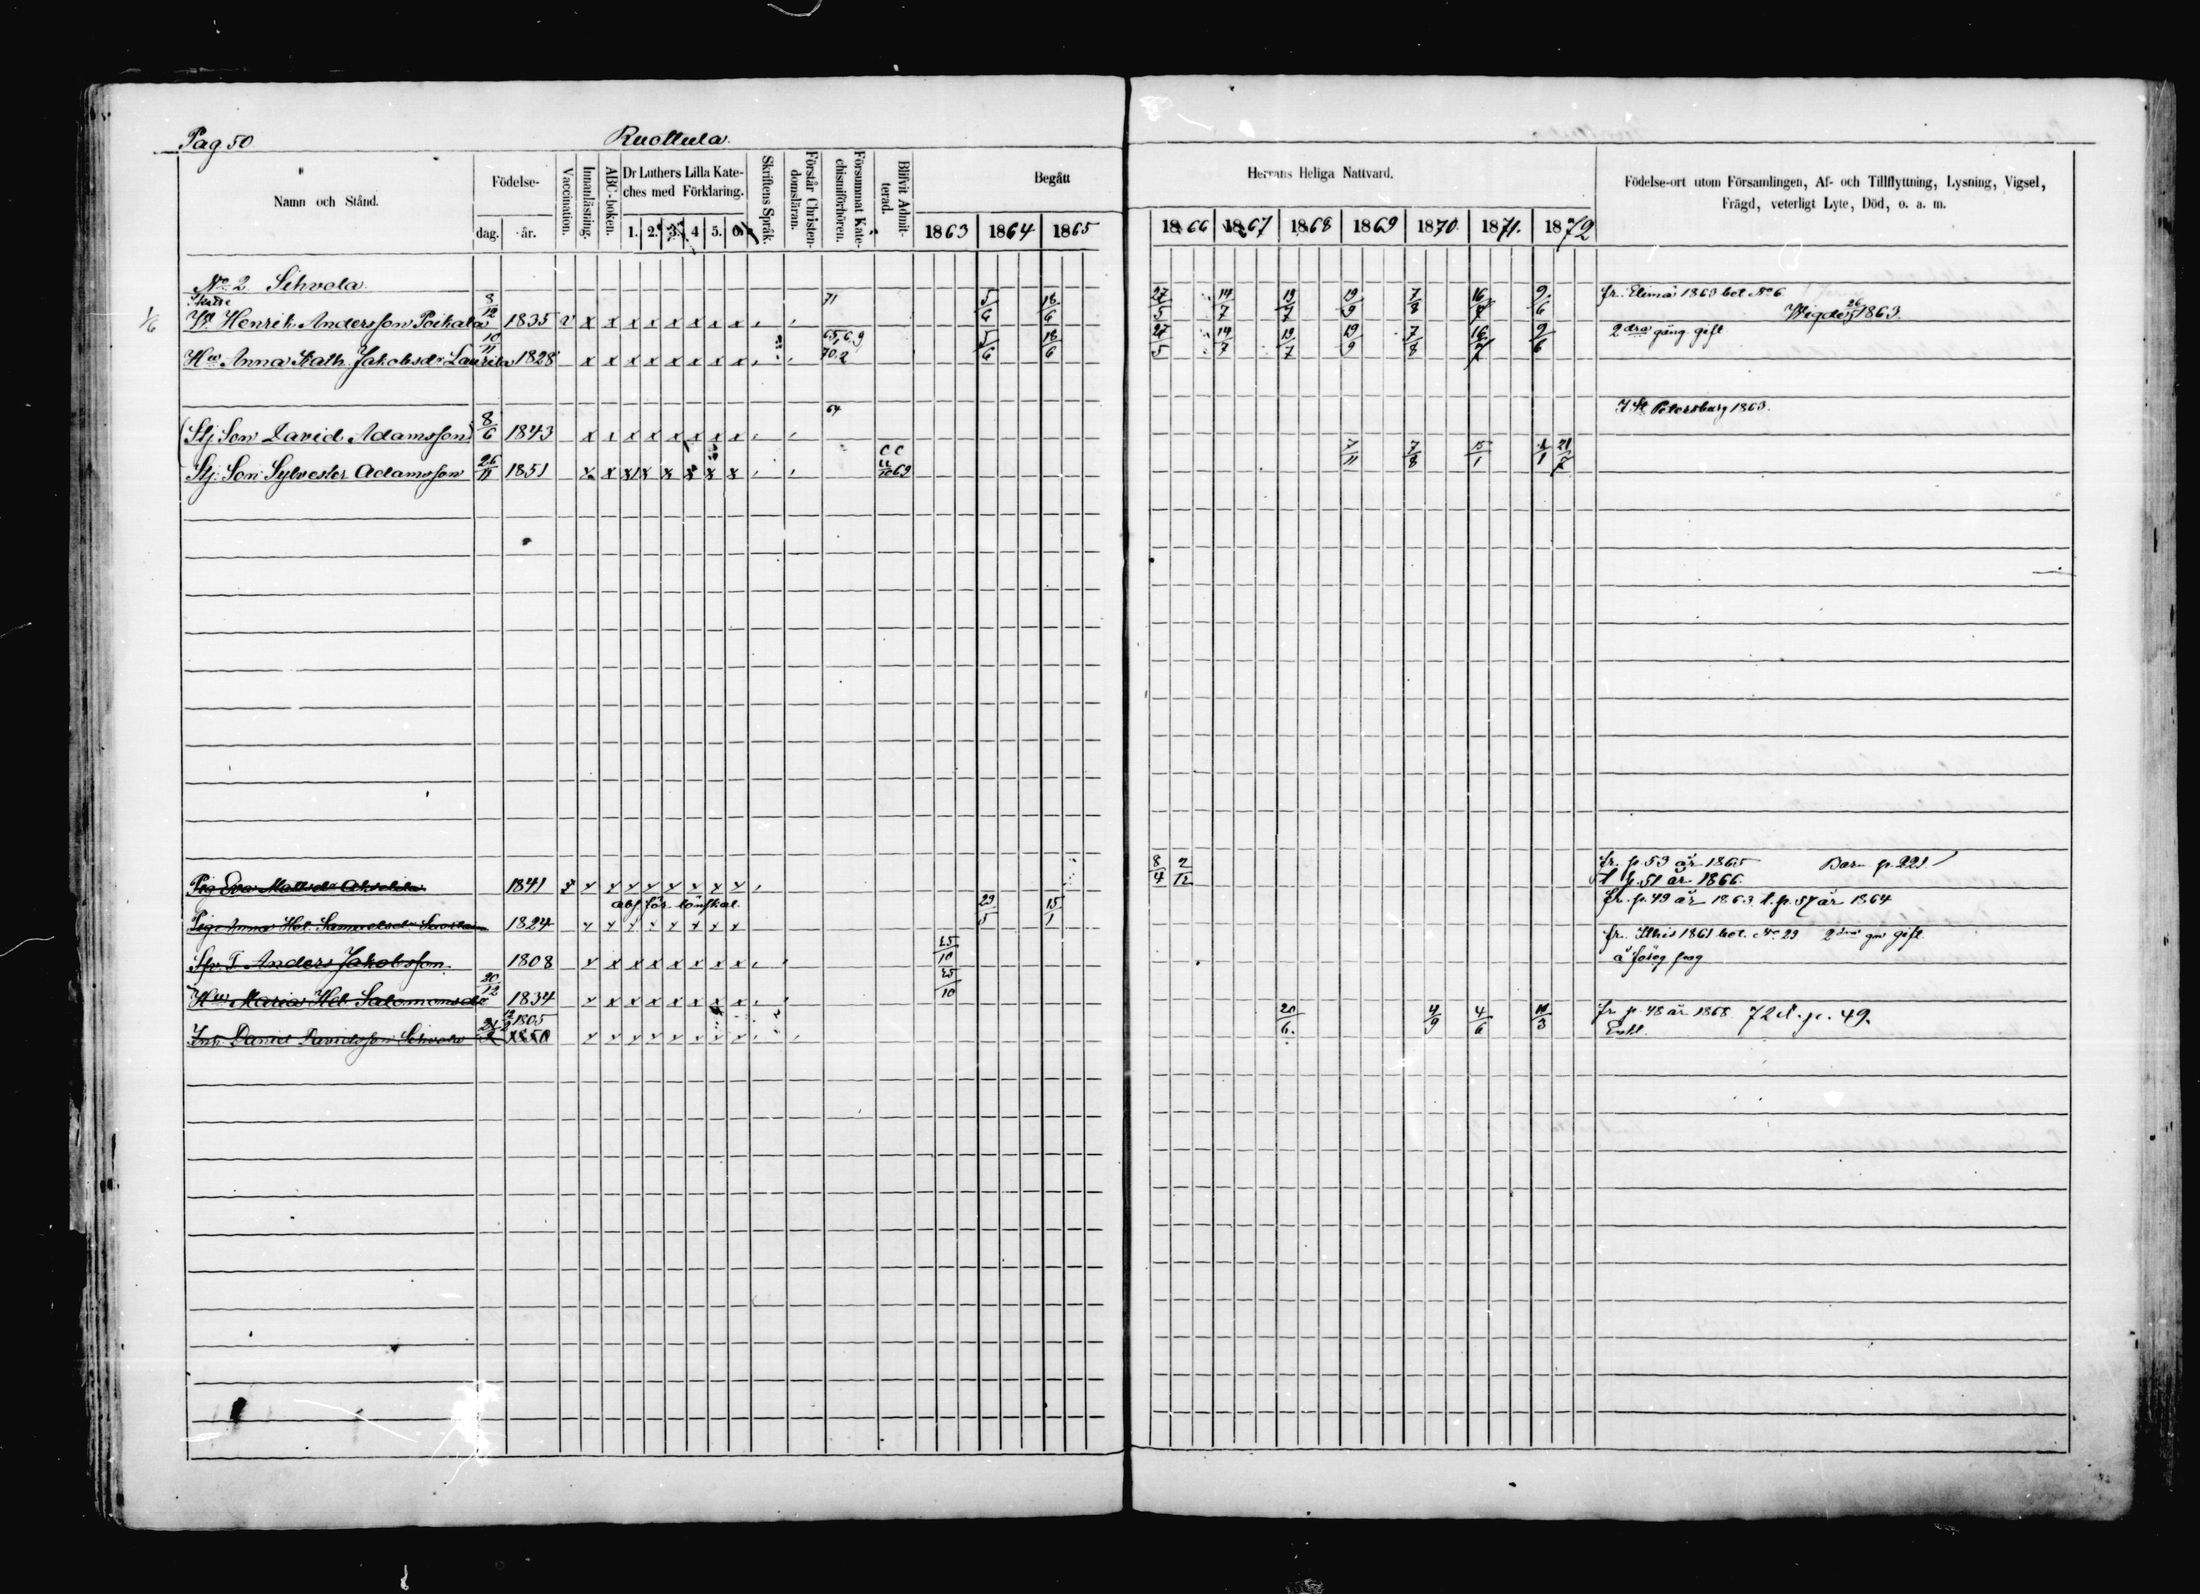 Pag 50 Ruottula.
Namn och Stånd. Födelse- dag. år. Vaccination. Innanläsning. ABC-boken. Dr Luthers Lilla Kateches med Förklaring. 1. 2. 3. 4 5. 6. Skriftens Språk. Förstår Christendomsläran. Försummat Katechismiförhören. Blifvit Admitterad. Begått 1863 1864 1865
Herrans Heliga Nattvard. 1866 1867 1868 1869 1870. 1871. 1872 Födelse-ort utom Församlingen, Af- och Tillflyttning, Lysning, Vigsel, Frägd, veterligt Lyte, Död, o. a. m.
No 2 Sihvola
1/6 Henrik Andersson Poikala 8/12 1835 v x x x x x x x x 71 5/6 18/6 27/5 14/7 19/7 19/9 7/8 16/7 9/6 fr. Elimä 1863 bet No 6 Vigde 26 1863.
Hu Anna Kath. Jakobsdr Laurila 10/11 1828 x x x x x x x x 65, 6, 9 70. 2 5/6 18/6 27/5 14/7 19/7 19/9 7/8 16/7 9/6 2dra gång. gift
(Stj. Son David Adamsson) 8/6 1843 x x x x x x x x 64 I St Petersburg 1863.
Stj. Son Sylvester Adamsson 26/11 1851 x x x x x x x x CC 11/10 69 7/11 7/8 15/1 1/1 21/7
Pig Eva Mattsdr 1841 x x x x x x x x 8/4 2/12 fr. p. 53 år 1865 Barn p. 221
t p. 51 år 1866.
abs för lönskal.
Pig. Anna Hel. Samuelsdr 1824 x x x x x x x x 29/5 15/1 fr. p. 49 år 1863. t. p. 57 år 1864
Anders Jakobsson 1808 x x x x x x x x 25/10 fr. Ithis 1861 bet. No 29 2dra gift
Hu Maria Hel. Salomonsdr 20/12 1834 x x x x x x x x 25/10
Daniel Davidsson Sihvola 12/2 1805 x x x x x x x x 20/6. 4/9 4/6 10/3 fr p. 48 år 1868. 72 t. p. 49.
Enkl.